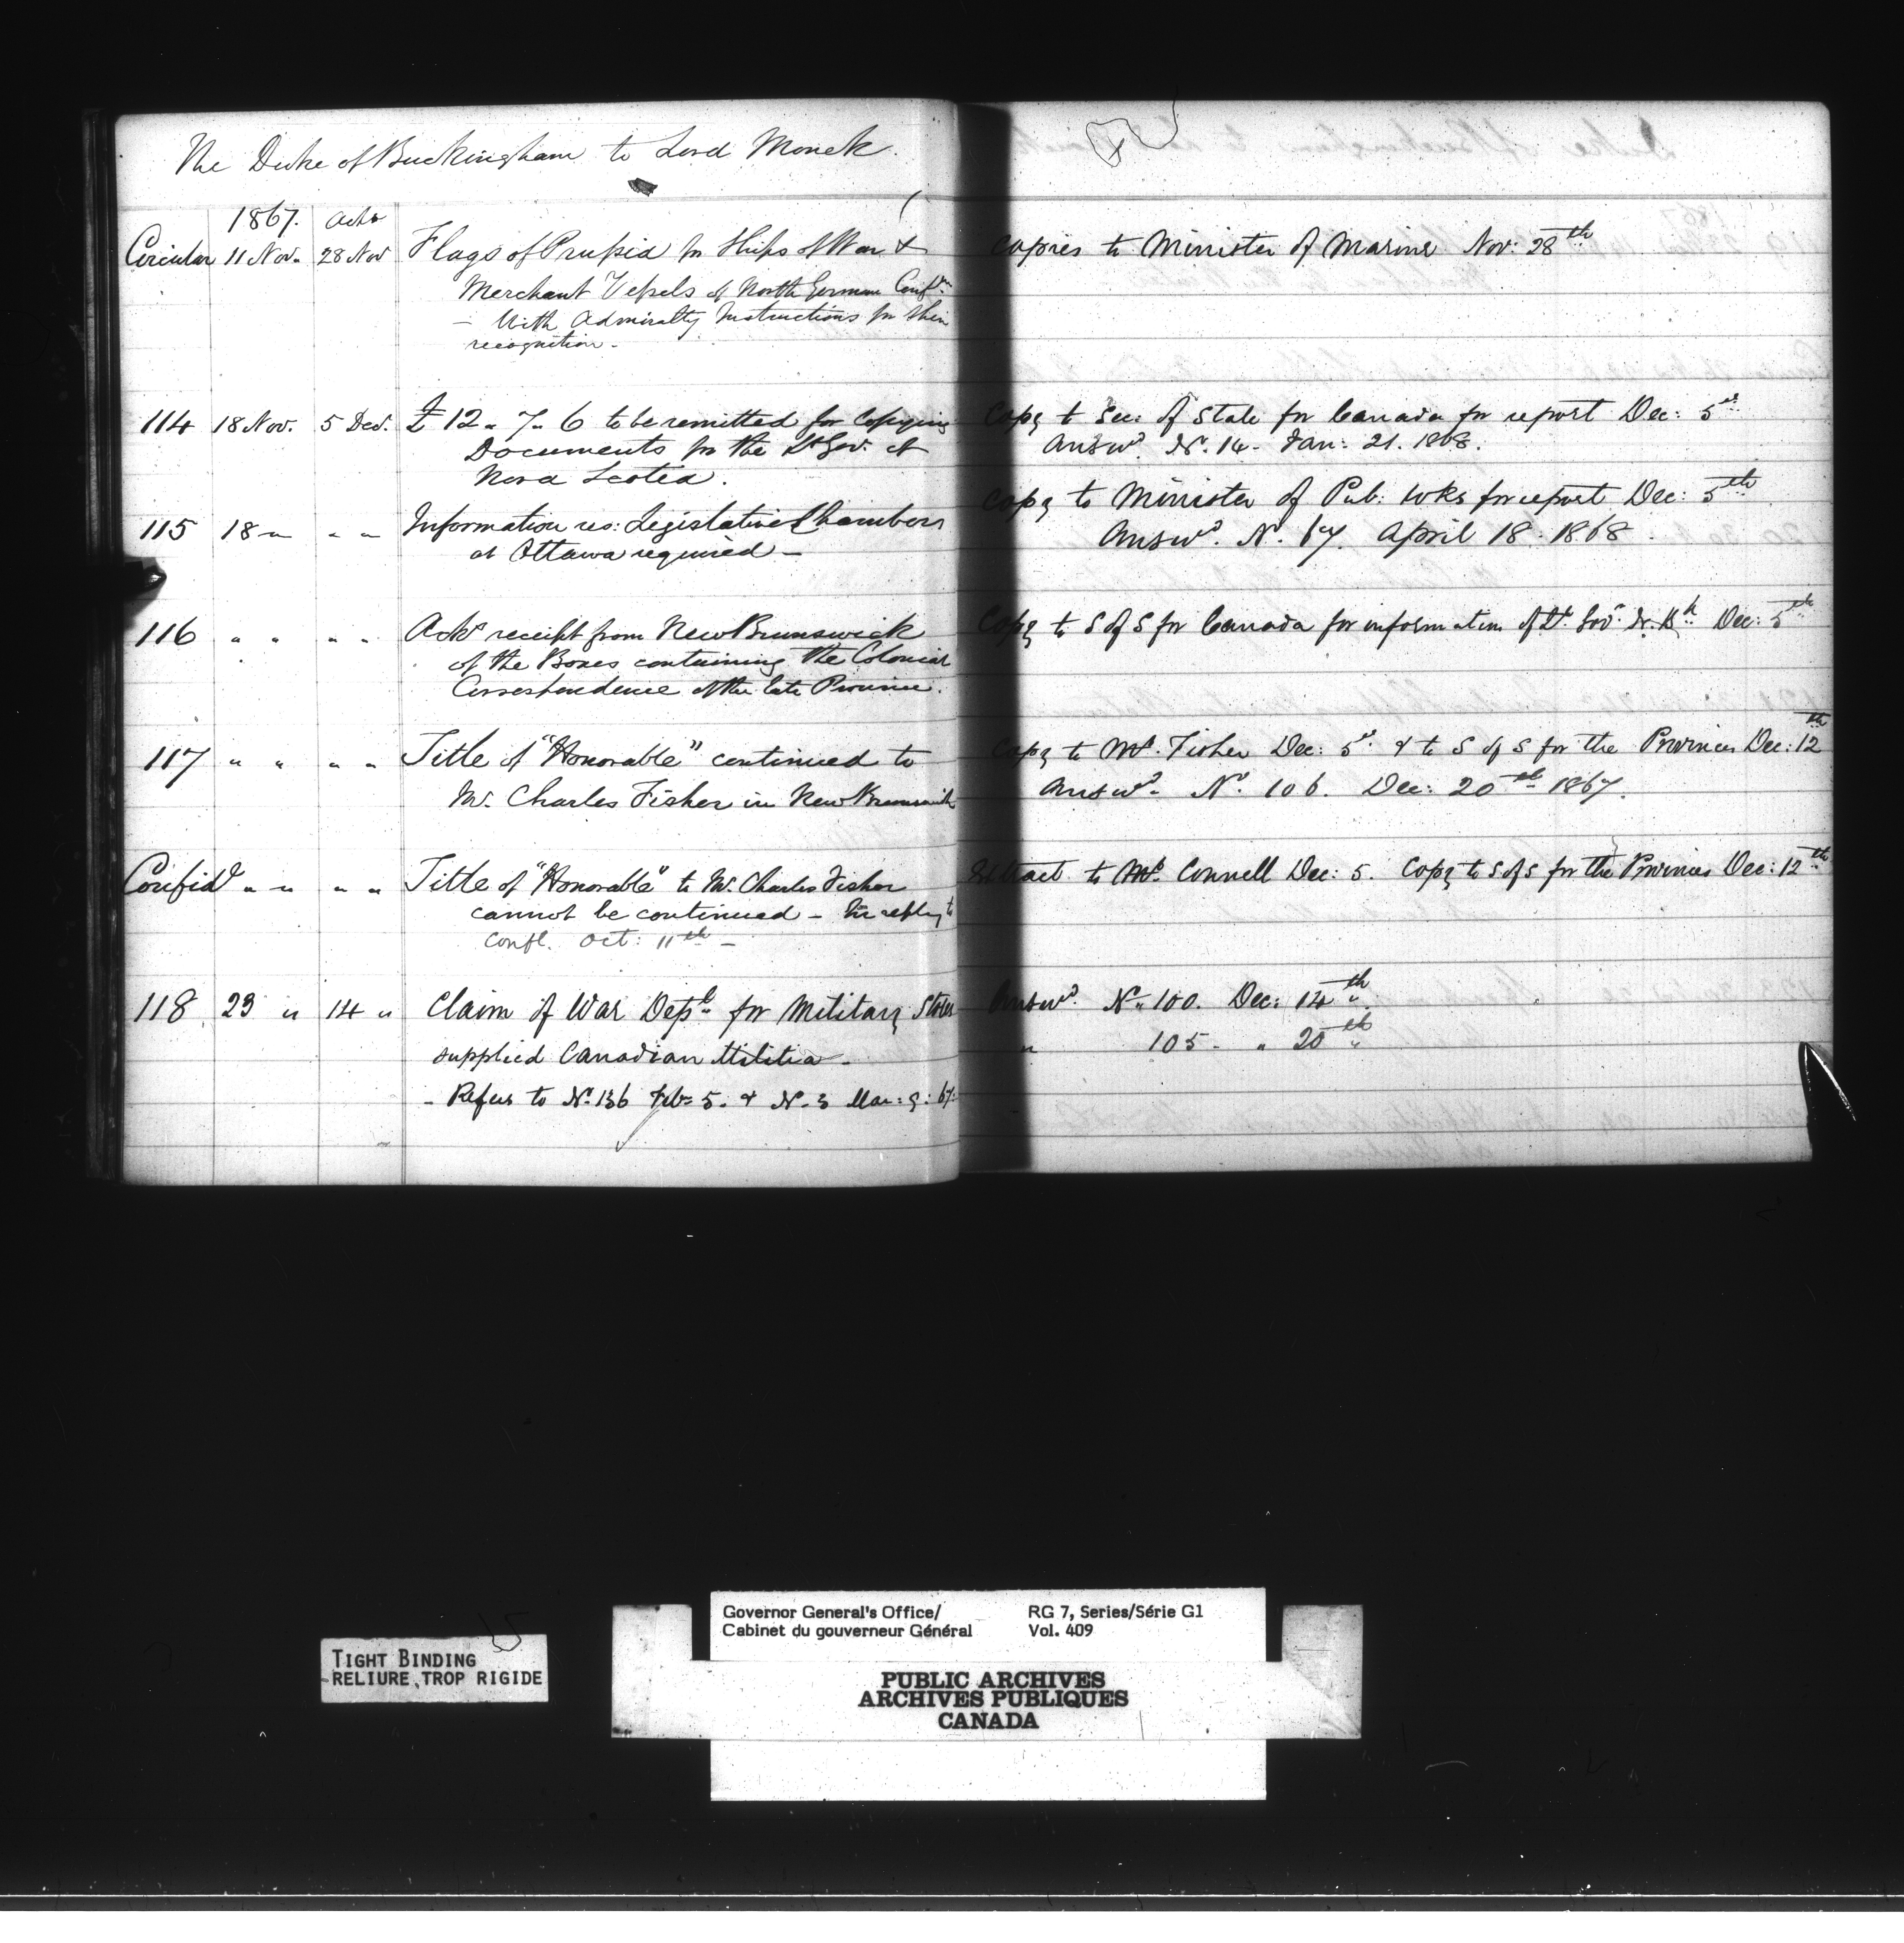 The Duke of Buckingham to Lord Monck.
1867. Ackd
Circular 11 Nov. 28 Nov Flags of Prussia for Ships of War &
Merchant Vessels of North German Confn
- With Admiralty Instructions for their
recognition -
Copies to Minister of Marine Nov: 28th
114 18 Nov. 5 Dec. £12 " 7 " 6 to be remitted for Copying
Documents for the Lt Gov: of
Nova Scotia.
Copy to Sec: of State for Canada for report Dec: 5th
Answd. No. 14 - Jan: 21. 1868.
115 18 " " " Information res: Legislative Chambers
at Ottawa required -
Copy to Minister of Pub: Wks for report Dec: 5th
Answd. No. 67. April 18. 1868.
116 " " " " Ackd receipt from New Brunswick
of the Boxes containing the Colonial
Correspondence of the late Province.
Copy to S of S for Canada for information of Lt. Govr. N. Bk Dec: 5th
117 " " " " Title of "Honorable" continued to
Mr. Charles Fisher in New Brunswick
Copy to Mr. Fisher Dec: 5th & to S of S for the Provinces Dec: 12th
Answd. No. 106. Dec: 20th 1867.
Confidl " " " " Title of "Honorable" to Mr. Charles Fisher
cannot be continued - In reply to
Confl. Oct: 11th -
Extract to Mr. Connell Dec: 5. Copy to S of S for the Provinces Dec: 12th
118 23 " 14 " Claim of War Dept for Military Stores
supplied Canadian Militia -
- Refers to No. 136 Feb: 5. & No. 3 Mar: 9: 67.
Answd. No. 100. Dec: 14th
" 105 - " 20th
TIGHT BINDING
RELIURE TROP RIGIDE
Governor General's Office/ RG 7, Series/Série G1
Cabinet du gouverneur Général Vol. 409
PUBLIC ARCHIVES
ARCHIVES PUBLIQUES
CANADA